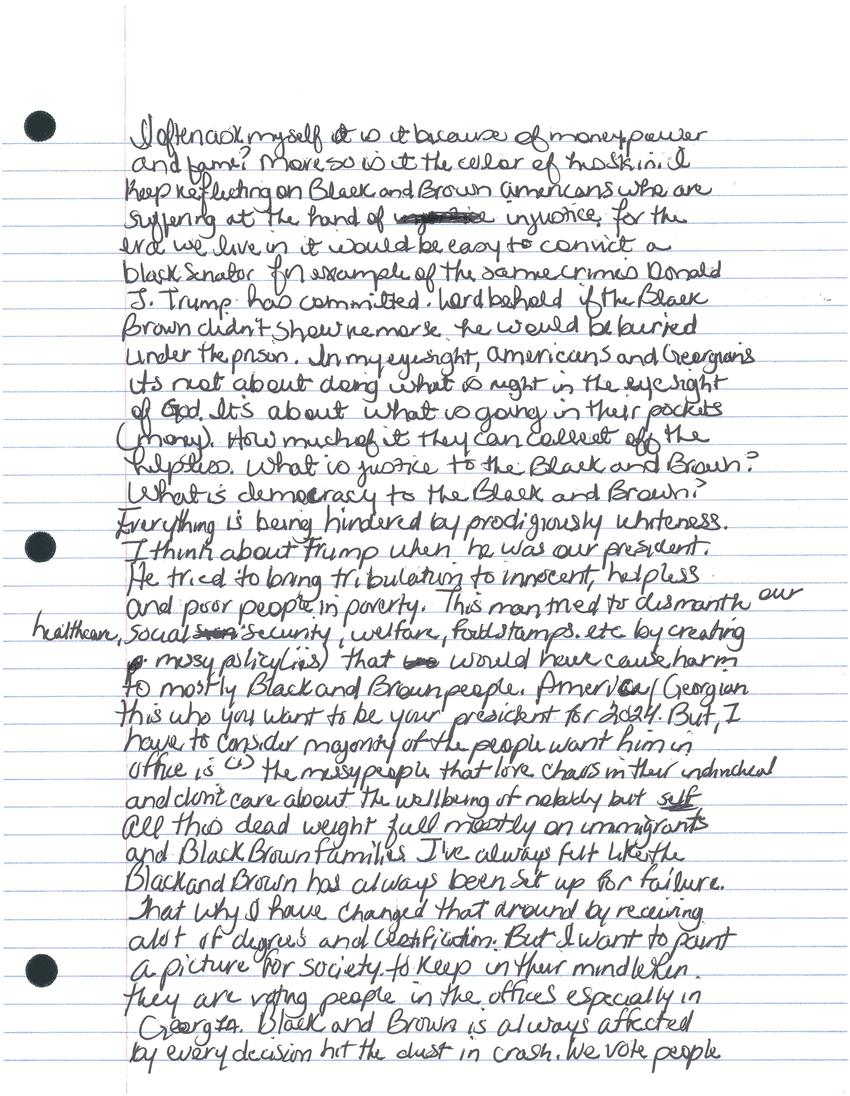 I often ask myself is it because of money, power
and fame? More so is it the color of his skin. I
keep reflecting on Black and Brown americans who are
suffering at the hand of injustice, for the
era we live in it would be easy to convict a
black Senator for example of the same crimes Donald
J. Trump has committed. Lord behold if the Black
Brown didn't show remorse he would be buried
under the prison. In my eyesight, americans and Georgians
its not about doing what is right in the eyesight
of God. It's about what is going in their pockets
(money). How much of it they can collect off the
helpless. What is justice to the Black and Brown?
What is democracy to the Black and Brown?
Everything is being hindered by prodigiously whiteness.
I think about Trump when he was our president.
He tried to bring tribulation to innocent, helpless
and poor people in poverty. This man tried to dismantle our
healthcare, social security, welfare, foodstamps. etc by creating
messy policy(ies) that would have cause harm
to mostly Black and Brown people. America/Georgian
this who you want to be your president for 2024. But, I
have to consider majority of the people want him in
office is the messy people that love chaos in their
and don't care about the wellbeing of nobody but self
all this dead weight fall mostly on immigrants
and Black Brown families. I've always felt like the
Black and Brown has always been set up for failure.
That why I have changed that around by receiving
alot of degrees and Certification. But I want to paint
a picture for society. to keep in their mind when.
they are voting people in the offices especially in
Georgia. Black and Brown is always affected
by every decision hit the dust in crash. We vote people